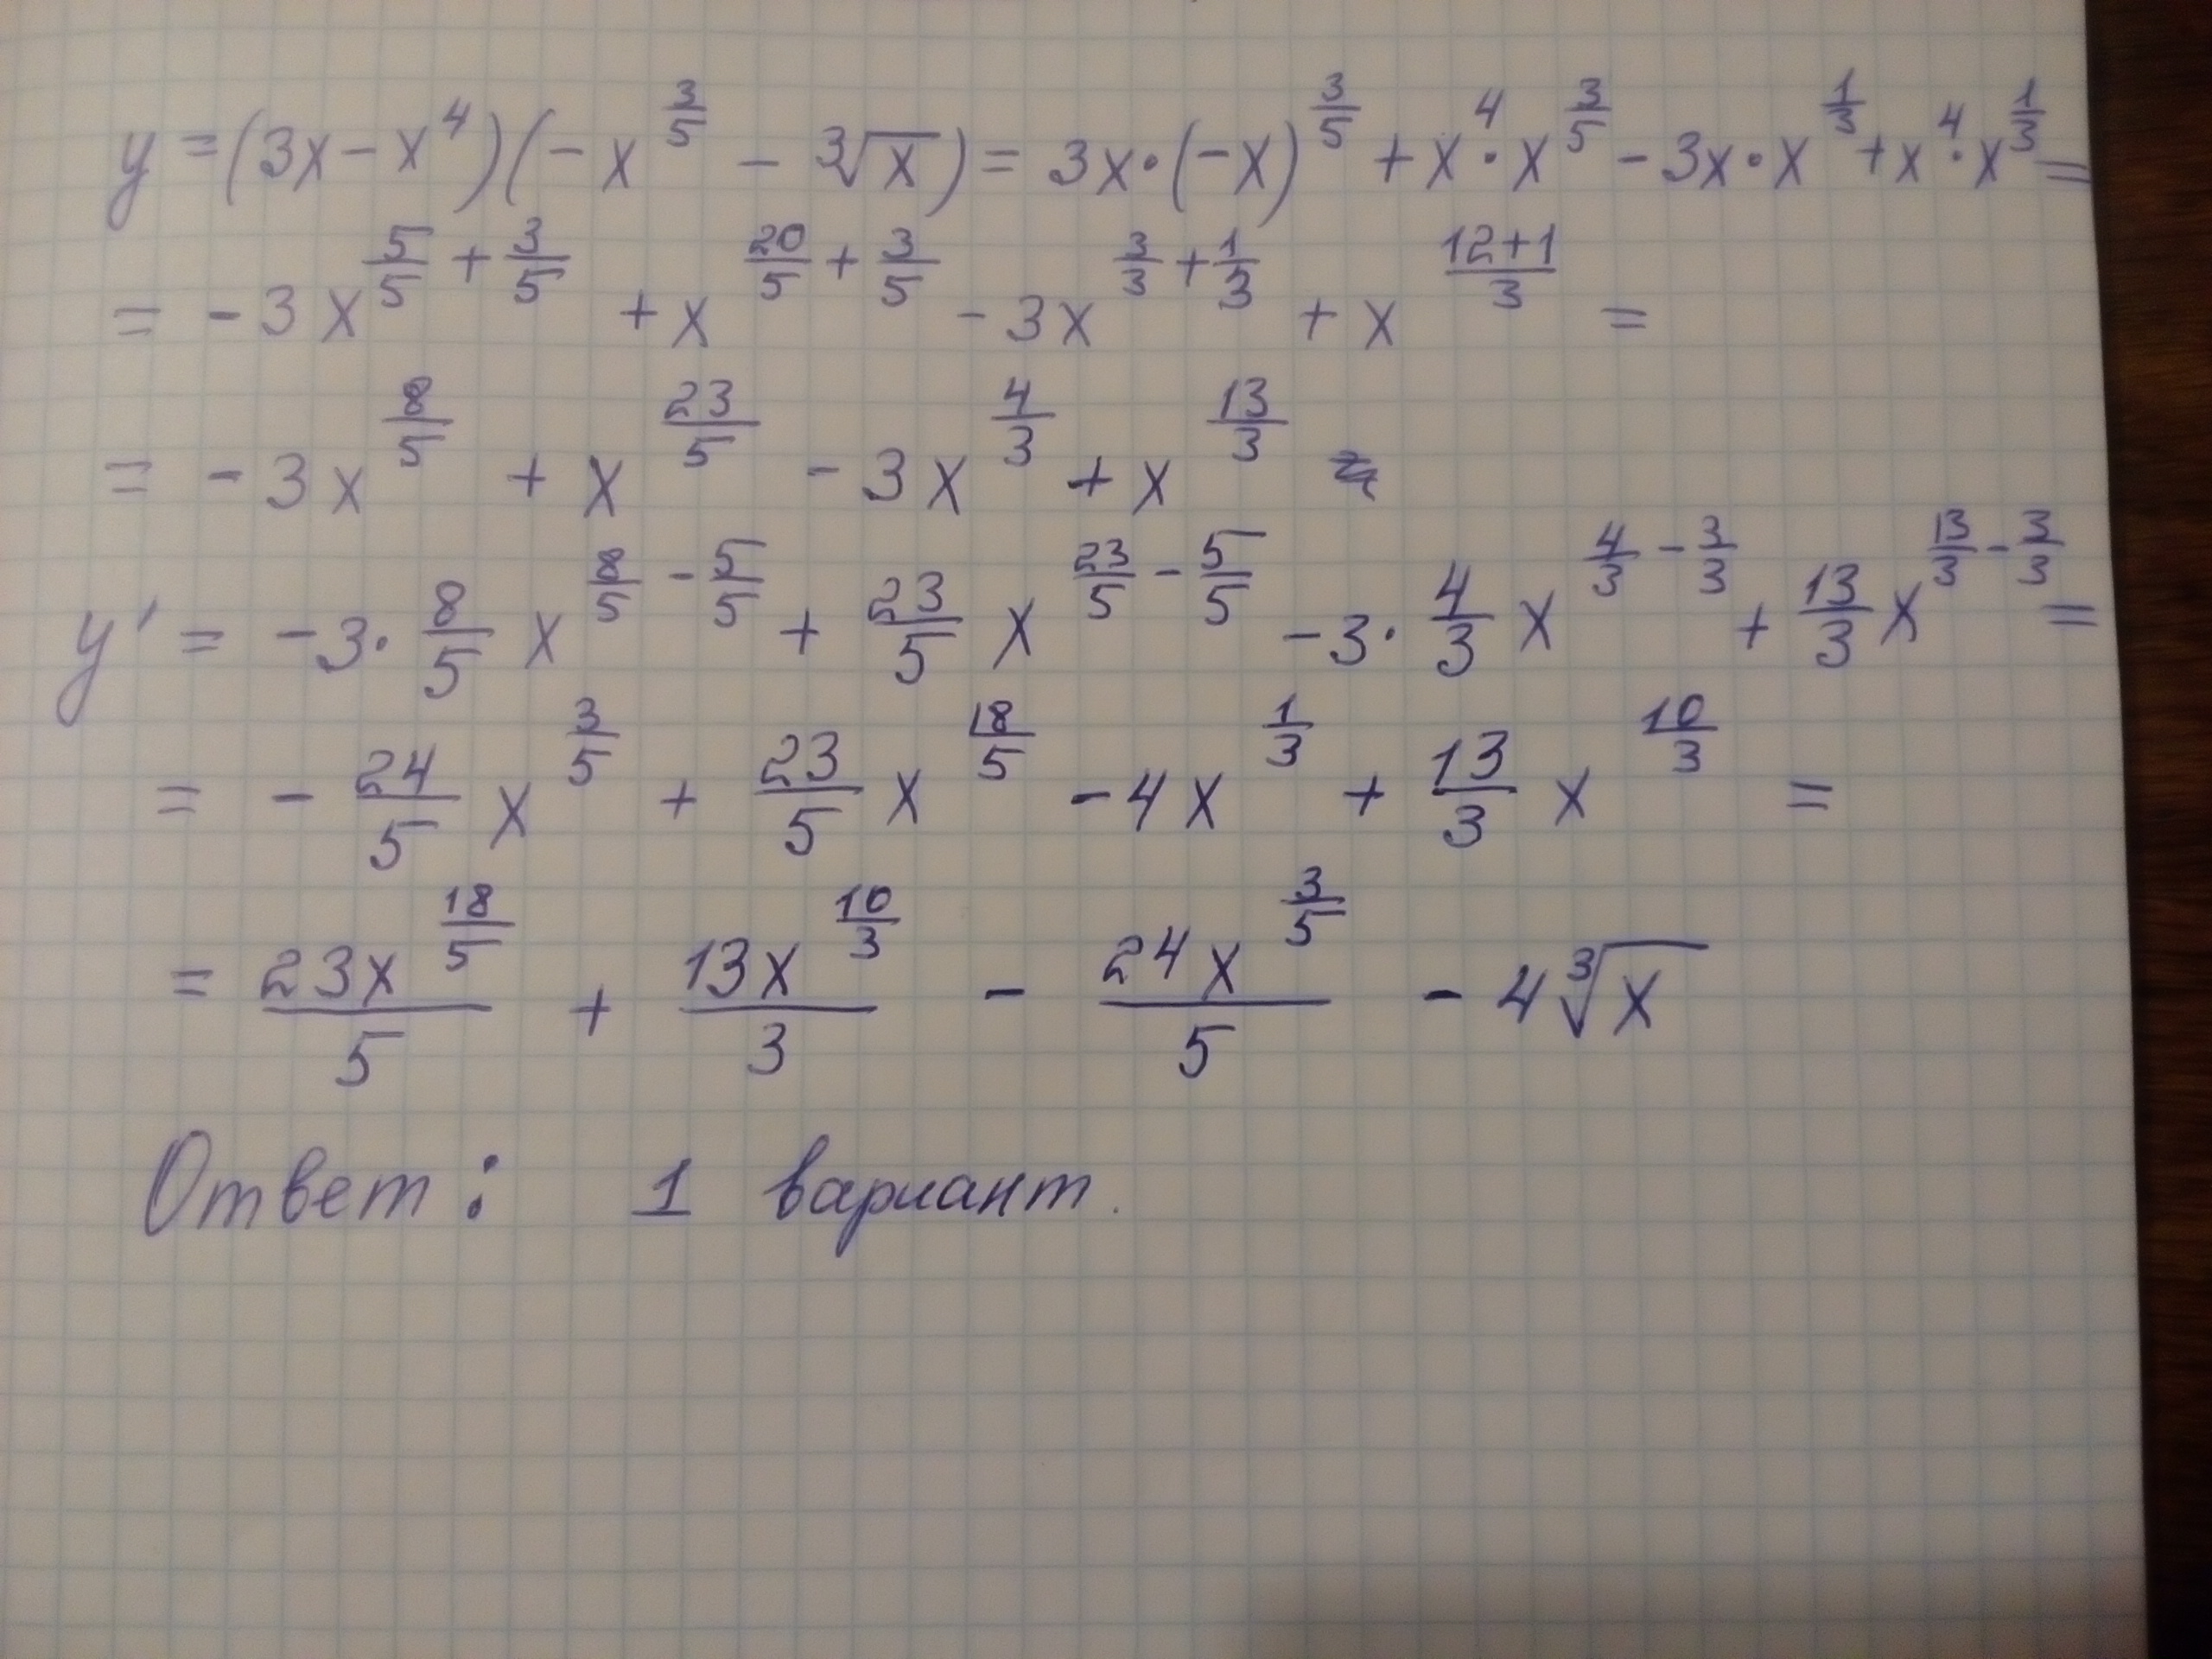 y = (3x - x^4)(-x^(3/5) - ∛x) = 3x·(-x)^(3/5) + x^4·x^(3/5) - 3x·x^(1/3) + x^4·x^(1/3) =
= -3x^(5/5 + 3/5) + x^(20/5 + 3/5) - 3x^(3/3 + 1/3) + x^((12+1)/3) =
= -3x^(8/5) + x^(23/5) - 3x^(4/3) + x^(13/3)
y' = -3·8/5 x^(8/5 - 5/5) + 23/5 x^(23/5 - 5/5) - 3·4/3 x^(4/3 - 3/3) + 13/3 x^(13/3 - 3/3) =
= - 24/5 x^(3/5) + 23/5 x^(18/5) - 4x^(1/3) + 13/3 x^(10/3) =
= 23x^(18/5)/5 + 13x^(10/3)/3 - 24x^(3/5)/5 - 4∛x
Ответ: 1 вариант.